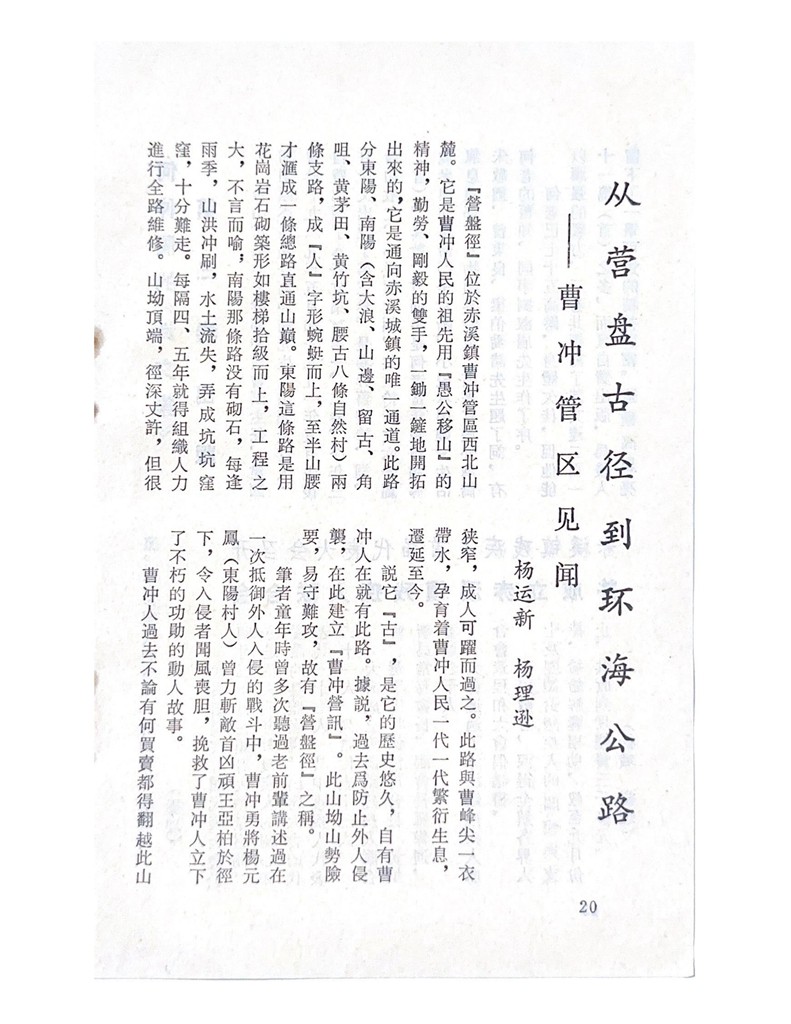 从营盘古径到环海公路
——曹冲管区见闻
杨运新　杨理逊
『營盤徑』位於赤溪鎮曹冲管區西北山
麓。它是曹冲人民的祖先用『愚公移山』的
精神，勤勞、剛毅的雙手，一鋤一鏟地開拓
出來的，它是通向赤溪城鎮的唯一通道。此路
分東陽、南陽（含大浪、山邊、留古、角
咀、黄茅田、黄竹坑、腰古八條自然村）兩
條支路，成『人』字形蜿蜒而上，至半山腰
才滙成一條總路直通山巔。東陽這條路是用
花崗岩石砌築形如樓梯拾級而上，工程之
大，不言而喻；南陽那條路没有砌石，每逢
雨季，山洪冲刷，水土流失，弄成坑坑窪
窪，十分難走。每隔四、五年就得組織人力
進行全路維修。山坳頂端，徑深丈許，但很
狭窄，成人可躍而過之。此路與曹峰尖一衣
帶水，孕育着曹冲人民一代一代繁衍生息，
遷延至今。
說它『古』，是它的歷史悠久，自有曹
冲人在就有此路。據説，過去爲防止外人侵
襲，在此建立『曹冲營訊』。此山坳山勢險
要，易守難攻，故有『營盤徑』之稱。
筆者童年時曾多次聽過老前輩講述過在
一次抵御外人入侵的戰斗中，曹冲勇將楊元
鳳（東陽村人）曾力斬敵首凶頑王亞柏於徑
下，令入侵者聞風喪胆，挽救了曹冲人立下
了不朽的功勛的動人故事。
曹冲人過去不論有何買賣都得翻越此山
20